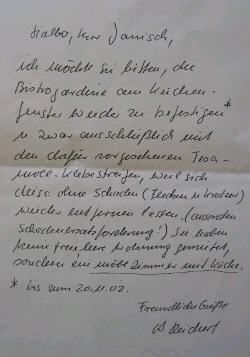 Hallo, Herr Janisch,
ich möchte Sie bitten, die
Bistrogardine am Küchen-
fenster wieder zu befestigen*
u. zwar ausschließlich mit
den dafür vorgesehenen Tesa-
moll-Klebestreifen, weil sich
diese ohne Schaden (Flecken u. Kratzer)
wieder entfernen lassen. (ansonsten
Schadenersatzforderung!) Sie haben
keine freie leere Wohnung gemietet,
sondern ein möbl. Zimmer mit Küche.
* bis zum 20.11.02.
Freundliche Grüße